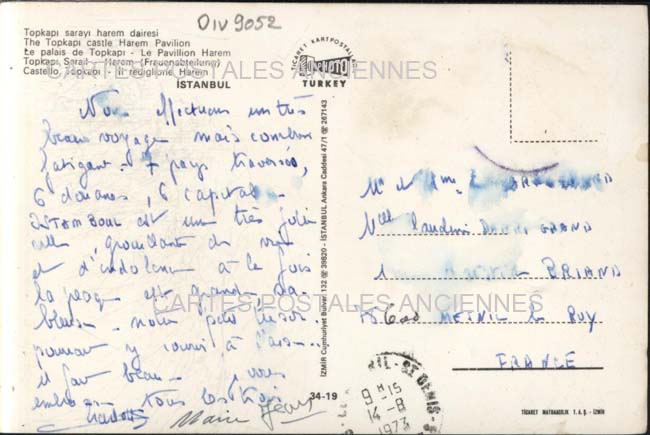 DIV 9052
Topkapı sarayı harem dairesi
The Topkapı castle Harem Pavilion
Le palais de Topkapı - Le Pavillion Harem
Topkapı Serail - Harem (Frauenabteilung)
Castello Topkapı - Il rediglione Harem
İSTANBUL
TİCARET KARTPOSTALLARI
TURKEY
CARTES POSTALES ANCIENNES
Nous effectuons un très
beau voyage mais combien
fatigant - 7 pays traversés,
6 douanes, 6 capitales -
ISTAMBOUL est une très jolie
ville, grouillante de vie
et d'indolence à la fois
la plage est grande, sa-
bleuse - notre petit trésor
pourrait y courir à l'aise...
il fait beau - vous
embrasse tous les trois
Marie Jean
İZMİR Cumhuriyet Bulvarı 132 @ 39820 - İSTANBUL Ankara Caddesi 47/1 @ 267143
34-19
Mr et Mme
Mlle
BRIAND
78600 MESNIL le ROY
FRANCE
CARTES POSTALES ANCIENNES
ST DENIS
9 H 15
14-8
1973
TİCARET MATBAACILIK T.A.Ş. - İZMİR